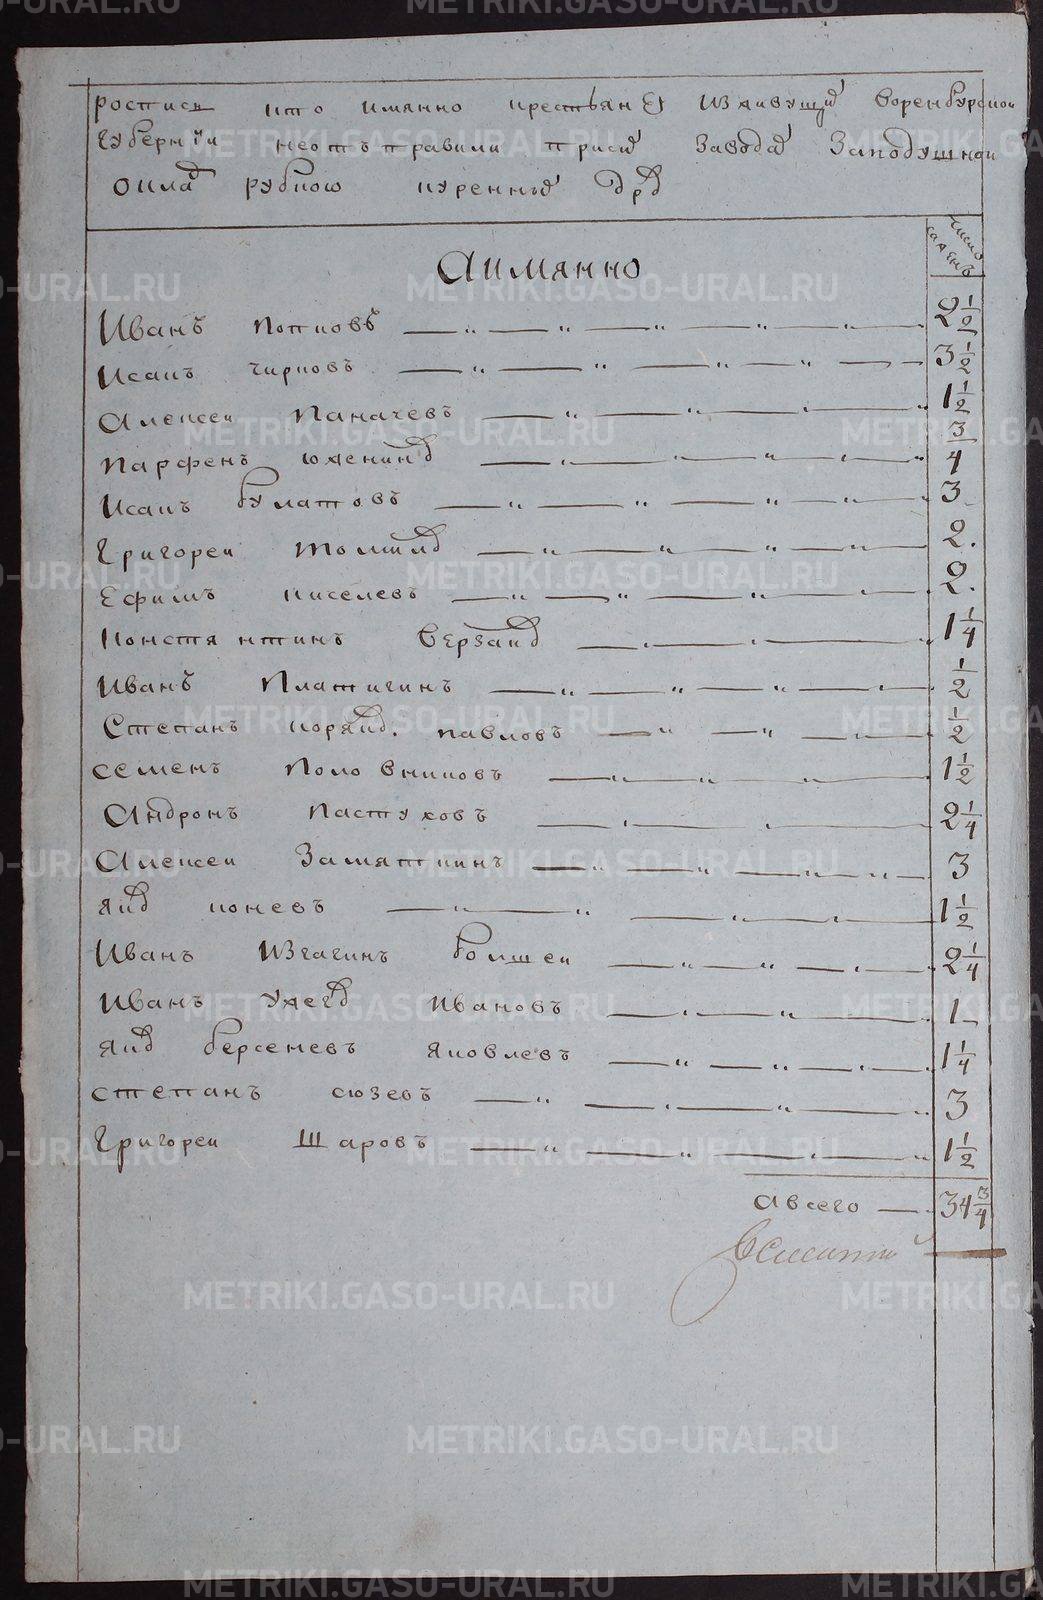 роспись кто имянно крестьян изживущих воренбурской
губернiи неотъправили приси завода заподушной
оклад рубкою куренных дров
число саженъ
Аимянно
Иванъ Попковъ 2 1/2
Исакъ чирковъ 3 1/2
Алексеи Паначевъ 1 1/2
Парфенъ южениновъ 3/4
Исакъ булатовъ 3
Григореи толмил 2.
Ефимъ киселевъ 2.
Констянтинъ верзаков 1 1/4
Иванъ Платыгинъ 1/2
Степанъ корякин. павловъ 1/2
семенъ Половниковъ 1 1/2
Андронъ Пастуховъ 2 1/4
Алексеи Замяткинъ 3
яков коневъ 1 1/2
Иванъ Изгагинъ болшеи 2 1/4
Иванъ ужегов Ивановъ 1
яков берсеневъ яковлевъ 1 1/4
степанъ сюзевъ 3
Григореи шаровъ 1 1/2
авсего 34 3/4
METRIKI.GASO-URAL.RU